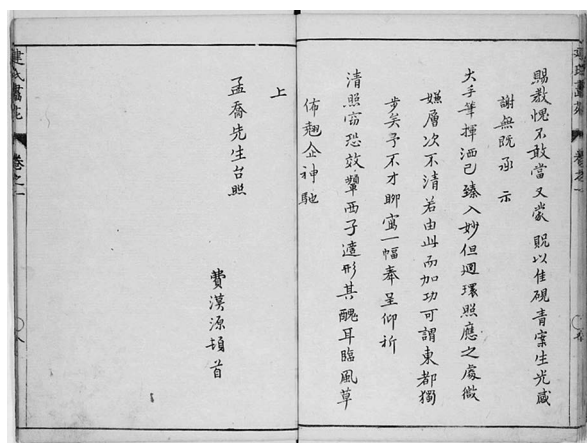 賜教愧不敢當又蒙 貺以佳硯青案生光感
謝無既承 示
大手筆揮洒已臻入妙但迴環照應之處微
嫌層次不清若由此而加功可謂東都獨
步矣予不才聊寫一幅奉呈仰祈
清照窃恐效顰西子遺形其醜耳臨風草
佈翹企神馳
上
孟喬先生台照
費漢源頓首
建氏畫苑 卷之一
八